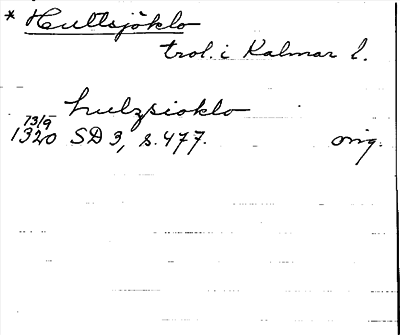 * Hultsjöklo
trol. i Kalmar l.
hulzsioklo
13/9
1320 SD 3, s. 477. orig.